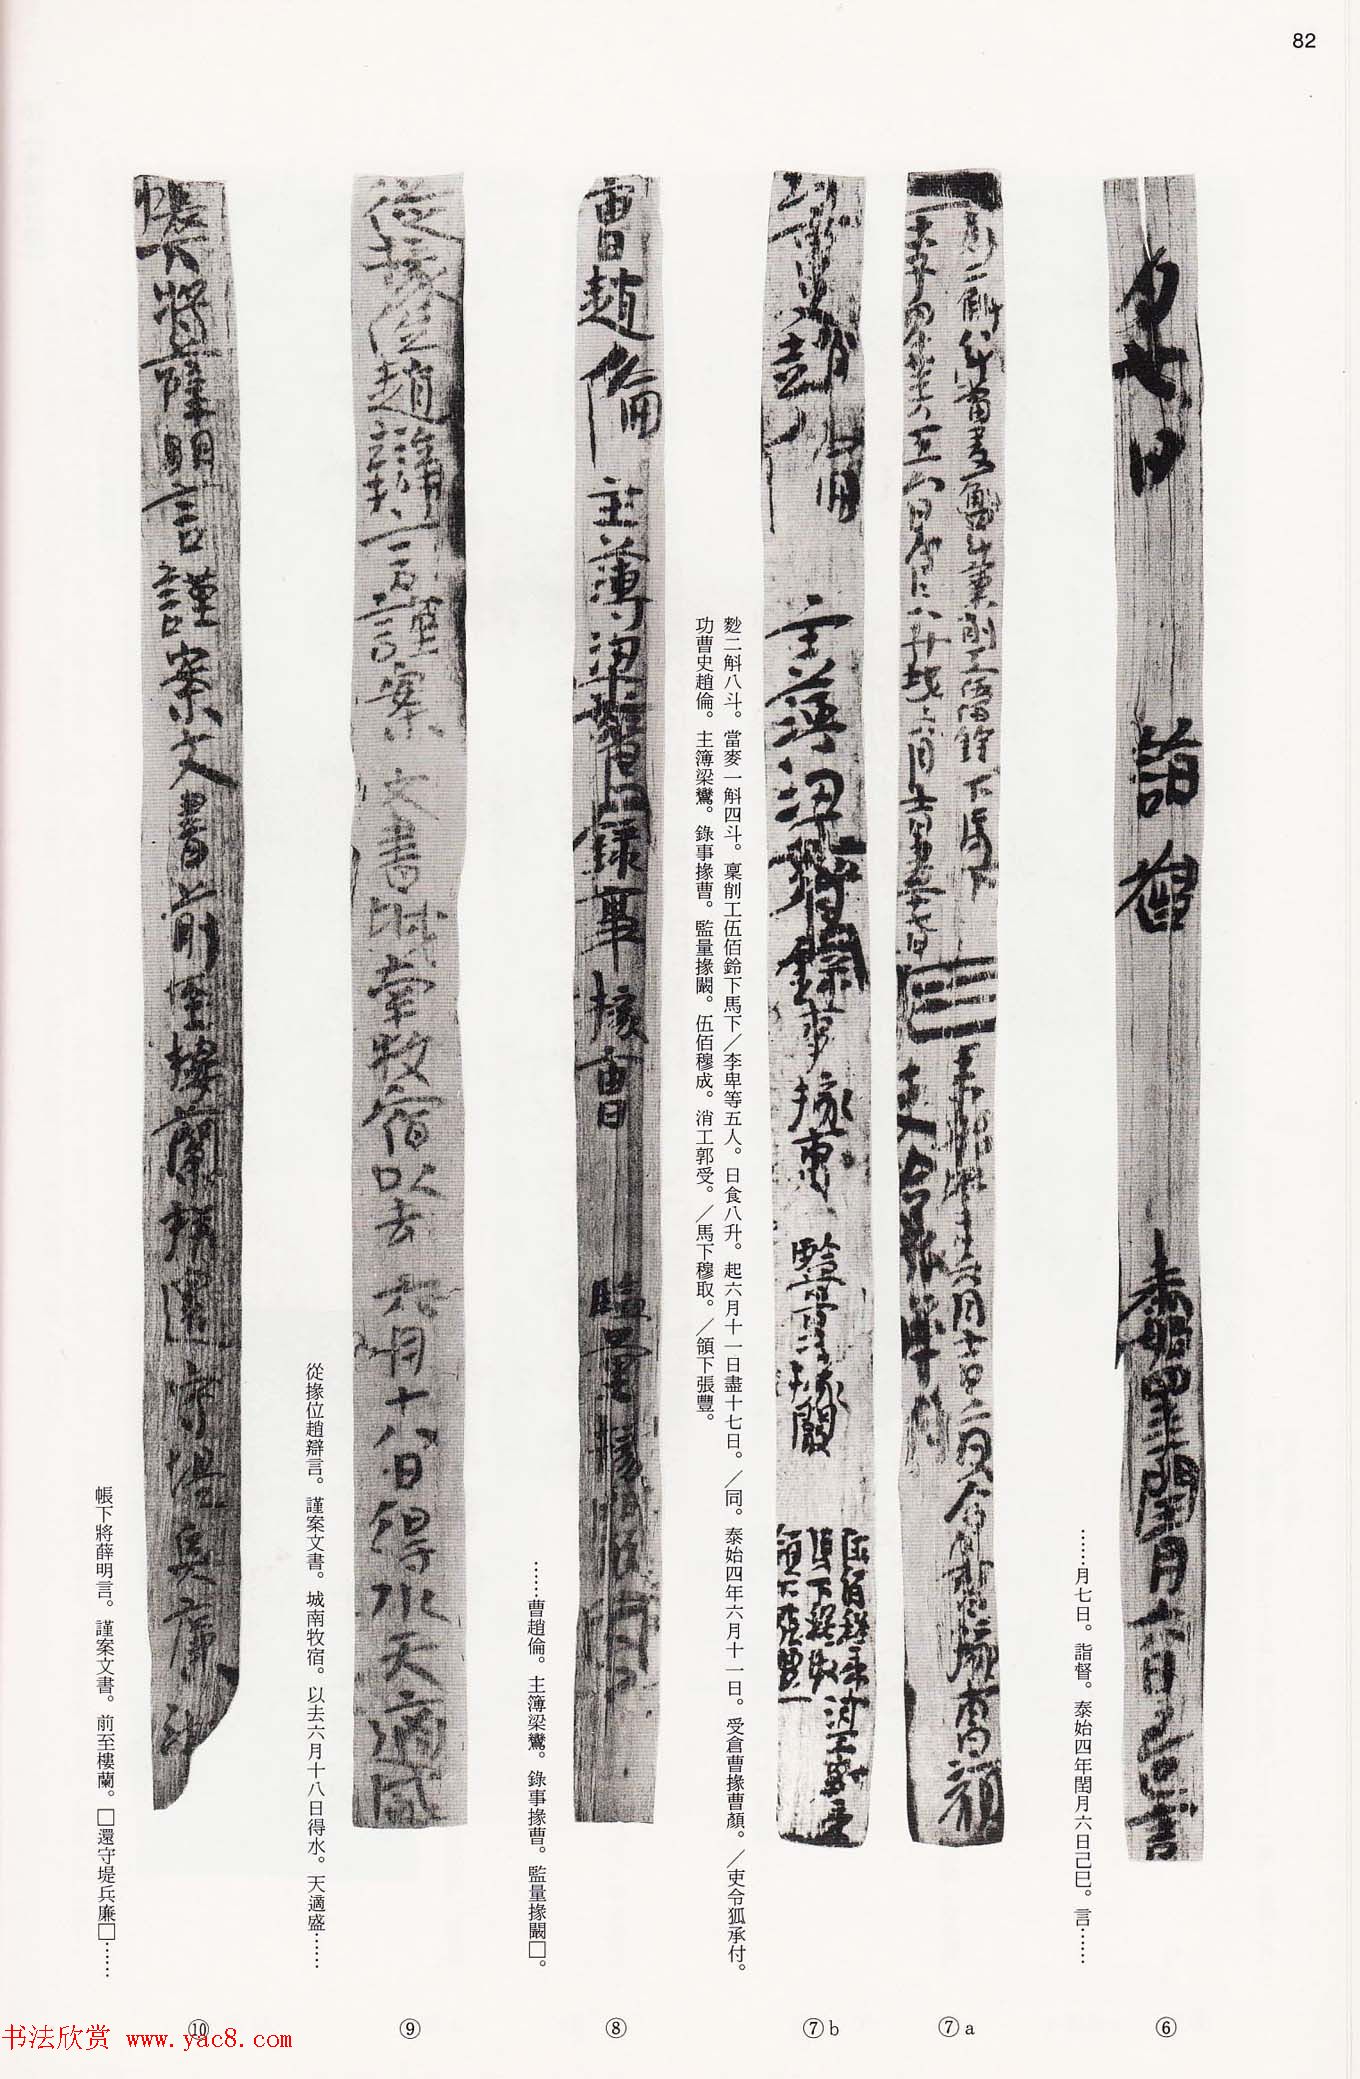 82
……月七日。詣督。泰始四年閏月六日己巳。言……
⑥
麨二斛八斗。當麥一斛四斗。稟削工伍佰鈴下馬下／李卑等五人。日食八升。起六月十一日盡十七日。／同。泰始四年六月十一日。受倉曹掾曹顏。／吏令狐承付。
功曹史趙倫。主簿梁鸞。錄事掾曹。監量掾闞。伍佰穆成。消工郭受。／馬下穆取。／領下張豐。
⑦a
⑦b
……曹趙倫。主簿梁鸞。錄事掾曹。監量掾闞□。
⑧
從掾位趙辯言。謹案文書。城南牧宿。以去六月十八日得水。天適盛……
⑨
帳下將薛明言。謹案文書。前至樓蘭。□還守堤兵廉□……
⑩
书法欣赏 www.yac8.com